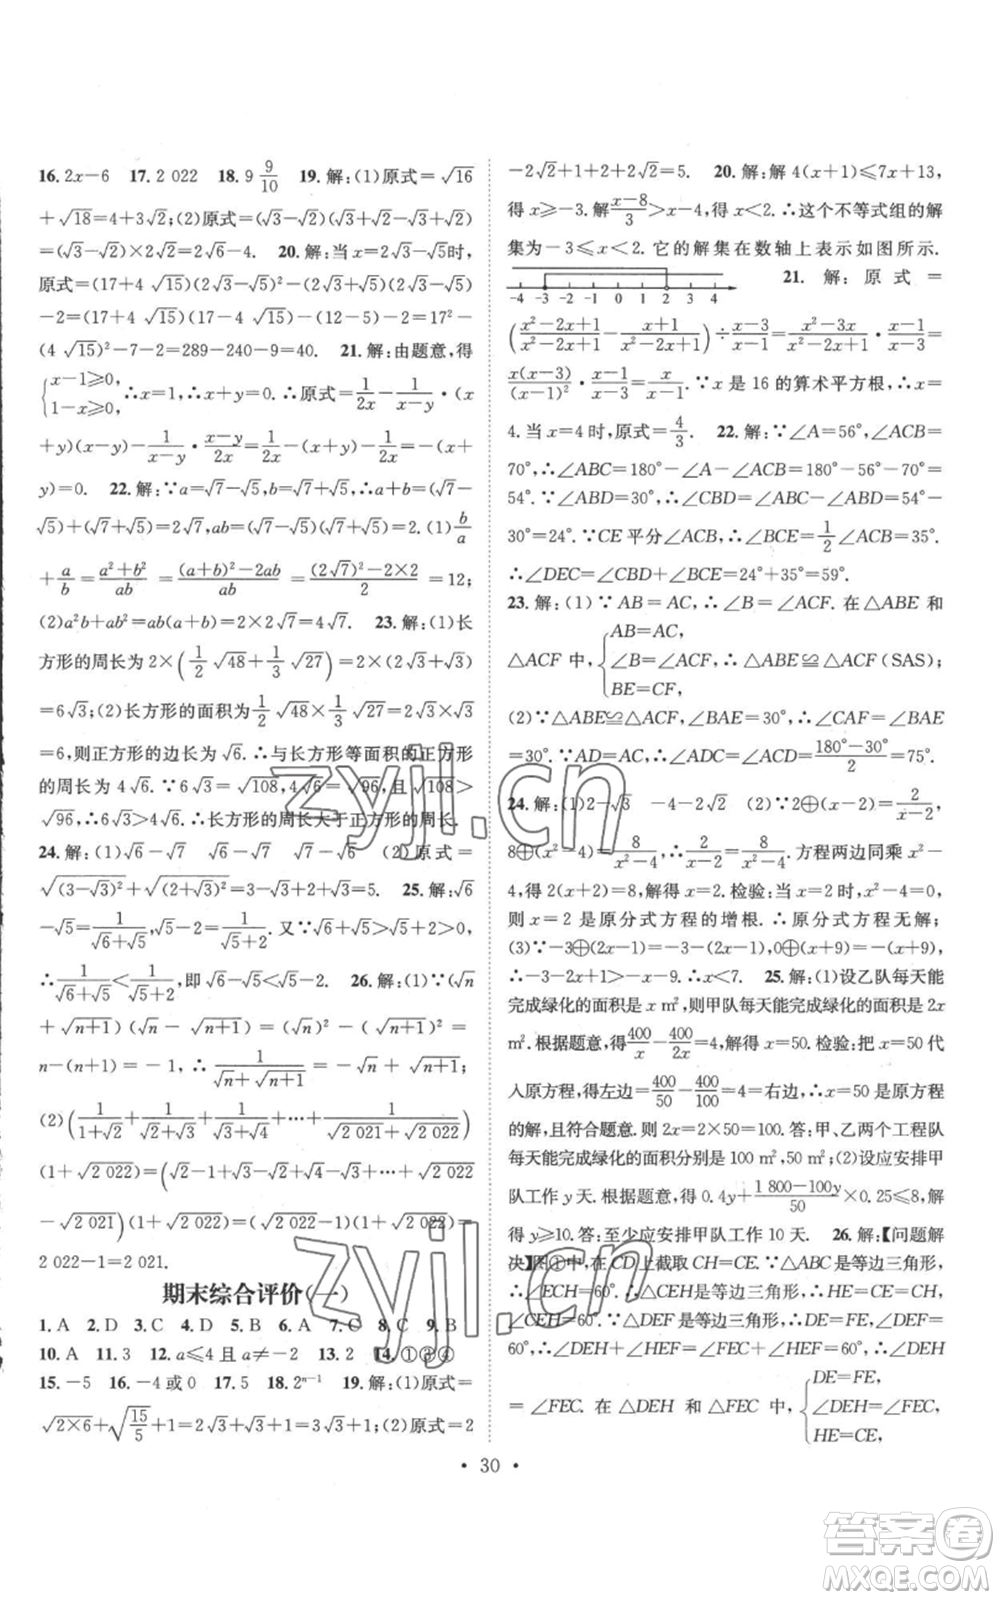 16. 2x-6　17. 2 022　18. 9 9/10　19. 解:(1)原式=√16
+√18=4+3√2;(2)原式=(√3-√2)(√3+√2-√3+√2)
=(√3-√2)×2√2=2√6-4.　20. 解:当x=2√3-√5时,
原式=(17+4√15)(2√3-√5)²-(2√3+√5)(2√3-√5)
-2=(17+4√15)(17-4√15)-(12-5)-2=17²-
(4√15)²-7-2=289-240-9=40.　21. 解:由题意,得
{x-1≥0, 1-x≥0, ∴x=1,∴x+y=0.∴原式=1/2x-1/(x-y)·(x
+y)(x-y)-1/(x-y)·(x-y)/2x=1/2x-(x+y)-1/2x=-(x+
y)=0.　22. 解:∵a=√7-√5,b=√7+√5,∴a+b=(√7-
√5)+(√7+√5)=2√7,ab=(√7-√5)(√7+√5)=2.(1)b/a
+a/b=(a²+b²)/ab=((a+b)²-2ab)/ab=((2√7)²-2×2)/2=12;
(2)a²b+ab²=ab(a+b)=2×2√7=4√7.　23. 解:(1)长
方形的周长为2×(1/2√48+1/3√27)=2×(2√3+√3)
=6√3;(2)长方形的面积为1/2√48×1/3√27=2√3×√3
=6,则正方形的边长为√6.∴与长方形等面积的正方形
的周长为4√6.∵6√3=√108,4√6=√96,且√108>
√96,∴6√3>4√6.∴长方形的周长大于正方形的周长.
24. 解:(1)√6-√5　√7-√6　(2)原式=
√(3-√3)²+√(2+√3)²=3-√3+2+√3=5.　25. 解:√6
-√5=1/(√6+√5),√5-2=1/(√5+2).又∵√6+√5>√5+2>0,
∴1/(√6+√5)<1/(√5+2),即√6-√5<√5-2.　26. 解:(1)∵(√n
+√(n+1))(√n-√(n+1))=(√n)²-(√(n+1))²=
n-(n+1)=-1,∴1/(√n+√(n+1))=-√n+√(n+1);
(2)(1/(1+√2)+1/(√2+√3)+1/(√3+√4)+…+1/(√2 021+√2 022))
(1+√2 022)=(√2-1+√3-√2+√4-√3+…+√2 022
-√2 021)(1+√2 022)=(√2 022-1)(1+√2 022)=
2 022-1=2 021.
期末综合评价(一)
1. A　2. D　3. C　4. D　5. B　6. A　7. C　8. C　9. B
10. A　11. 3　12. a≤4且a≠-2　13. 2　14. ①
15. -5　16. -4或0　17. 5　18. 2ⁿ⁻¹　19. 解:(1)原式=
√(2×6)+√(15/5)+1=2√3+√3+1=3√3+1;(2)原式=2
-2√2+1+2+2√2=5.　20. 解:解4(x+1)≤7x+13,
得x≥-3.解(x-8)/3>x-4,得x<2.∴这个不等式组的解
集为-3≤x<2.它的解集在数轴上表示如图所示.
-4 -3 -2 -1 0 1 2 3 4　21. 解:原式=
((x²-2x+1)/(x²-2x+1)-(x+1)/(x²-2x+1))÷(x-3)/(x-1)=(x²-3x)/(x²-2x+1)·(x-1)/(x-3)=
x(x-3)/(x-1)²·(x-1)/(x-3)=x/(x-1).∵x是16的算术平方根,∴x=
4.当x=4时,原式=4/3.　22. 解:∵∠A=56°,∠ACB=
70°,∴∠ABC=180°-∠A-∠ACB=180°-56°-70°=
54°.∵∠ABD=30°,∴∠CBD=∠ABC-∠ABD=54°-
30°=24°.∵CE平分∠ACB,∴∠BCE=1/2∠ACB=35°.
∴∠DEC=∠CBD+∠BCE=24°+35°=59°.
23. 解:(1)∵AB=AC,∴∠B=∠ACF.在△ABE和
△ACF中,{AB=AC, ∠B=∠ACF, BE=CF, ∴△ABE≌△ACF(SAS);
(2)∵△ABE≌△ACF,∠BAE=30°,∴∠CAF=∠BAE
=30°.∵AD=AC,∴∠ADC=∠ACD=(180°-30°)/2=75°.
24. 解:(1)2-√3　-4-2√2　(2)∵2⊕(x-2)=2/(x-2),
8⊕(x²-4)=8/(x²-4),∴2/(x-2)=8/(x²-4).方程两边同乘x²-
4,得2(x+2)=8,解得x=2.检验:当x=2时,x²-4=0,
则x=2是原分式方程的增根.∴原分式方程无解;
(3)∵-3⊕(2x-1)=-3-(2x-1),0⊕(x+9)=-(x+9),
∴-3-2x+1>-x-9.∴x<7.　25. 解:(1)设乙队每天能
完成绿化的面积是x m²,则甲队每天能完成绿化的面积是2x
m².根据题意,得400/x-400/2x=4,解得x=50.检验:把x=50代
入原方程,得左边=400/50-400/100=4=右边,∴x=50是原方程
的解,且符合题意.则2x=2×50=100.答:甲、乙两个工程队
每天能完成绿化的面积分别是100 m²,50 m²;(2)设应安排甲
队工作y天.根据题意,得0.4y+(1 800-100y)/50×0.25≤8,解
得y≥10.答:至少应安排甲队工作10天.　26. 解:【问题解
决】图①中,在CD上截取CH=CE.∵△ABC是等边三角形,
∴∠ECH=60°.∴△CEH是等边三角形.∴EH=EC=CH,
∠CEH=60°.∵△DEF是等边三角形,∴DE=FE,
∠DEF=60°.∴∠DEH+∠HEF=∠FEC+∠HEF=60°,∴∠DEH
=∠FEC.在△DEH和△FEC中,{DE=FE, ∠DEH=∠FEC, HE=CE,
· 30 ·
zyjl.cn
zyjl.cn
答案圈
MXQE.COM